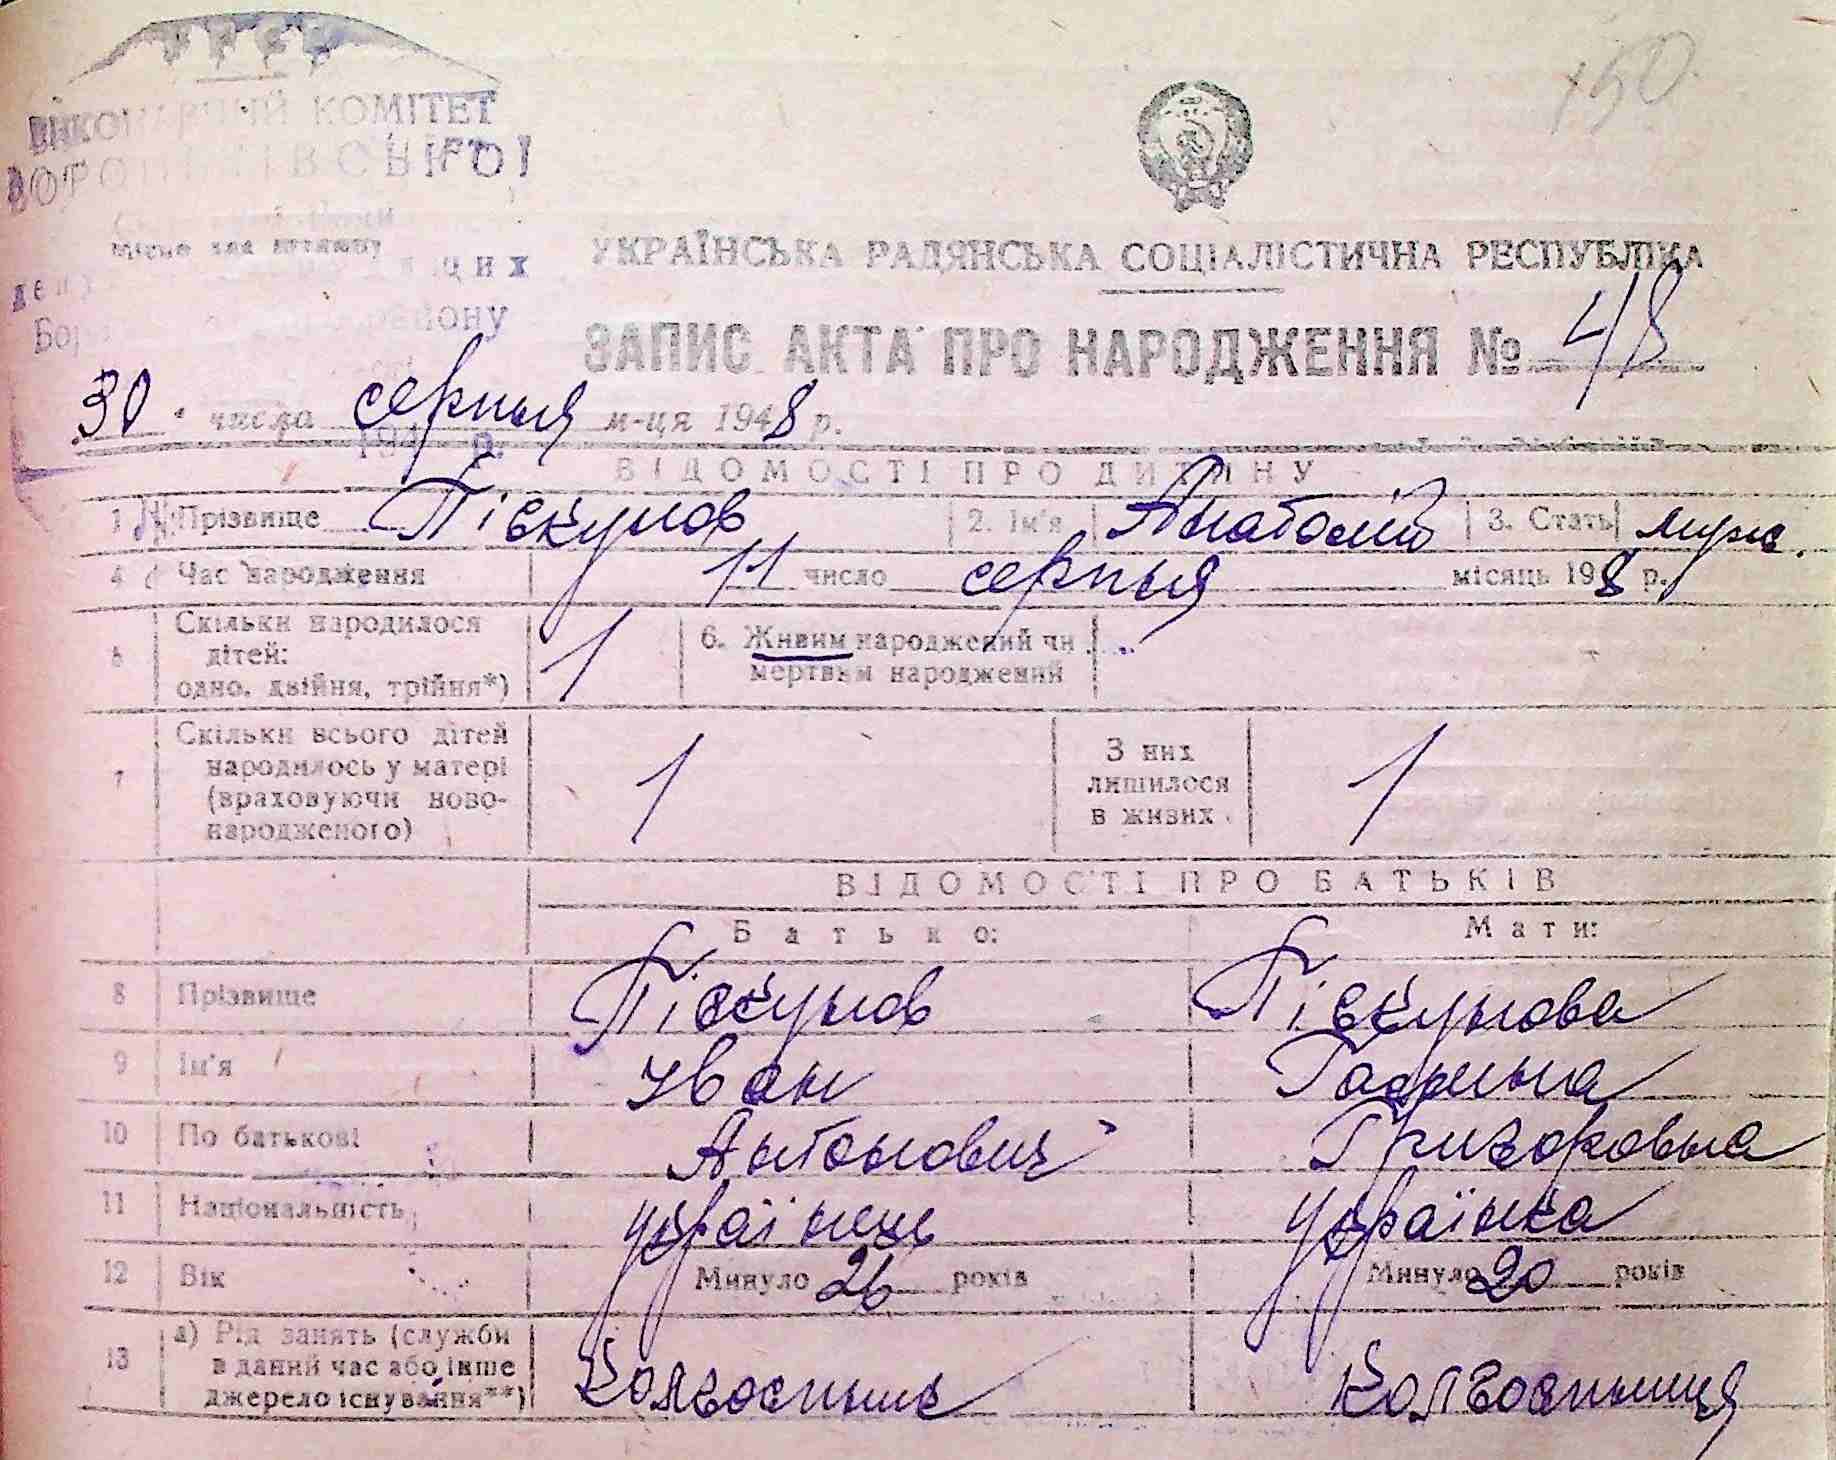 УРСР
ВИКОНАВЧИЙ КОМІТЕТ
місце для штампу
УКРАЇНСЬКА РАДЯНСЬКА СОЦІАЛІСТИЧНА РЕСПУБЛІКА
ЗАПИС АКТА ПРО НАРОДЖЕННЯ № 48
30 числа серпня м-ця 1948 р.
ВІДОМОСТІ ПРО ДИТИНУ
1 Прізвище Піскунов 2. Ім'я Анатолій 3. Стать муж.
4 Час народження 11 число серпня місяць 198 р.
5 Скільки народилося дітей: одно, двійня, трійня*) 1 6. Живим народжений чи мертвим народжений "
7 Скільки всього дітей народилось у матері (враховуючи новонародженого) 1 З них лишилося в живих 1
ВІДОМОСТІ ПРО БАТЬКІВ
Батько: Мати:
8 Прізвище Піскунов Піскунова
9 Ім'я Іван
10 По батькові Антонович Григоровна
11 Національність українець українка
12 Вік Минуло 26 років Минуло 20 років
13 а) Рід занять (служби в даний час або інше джерело існування**) Колгоспник Колгоспниця